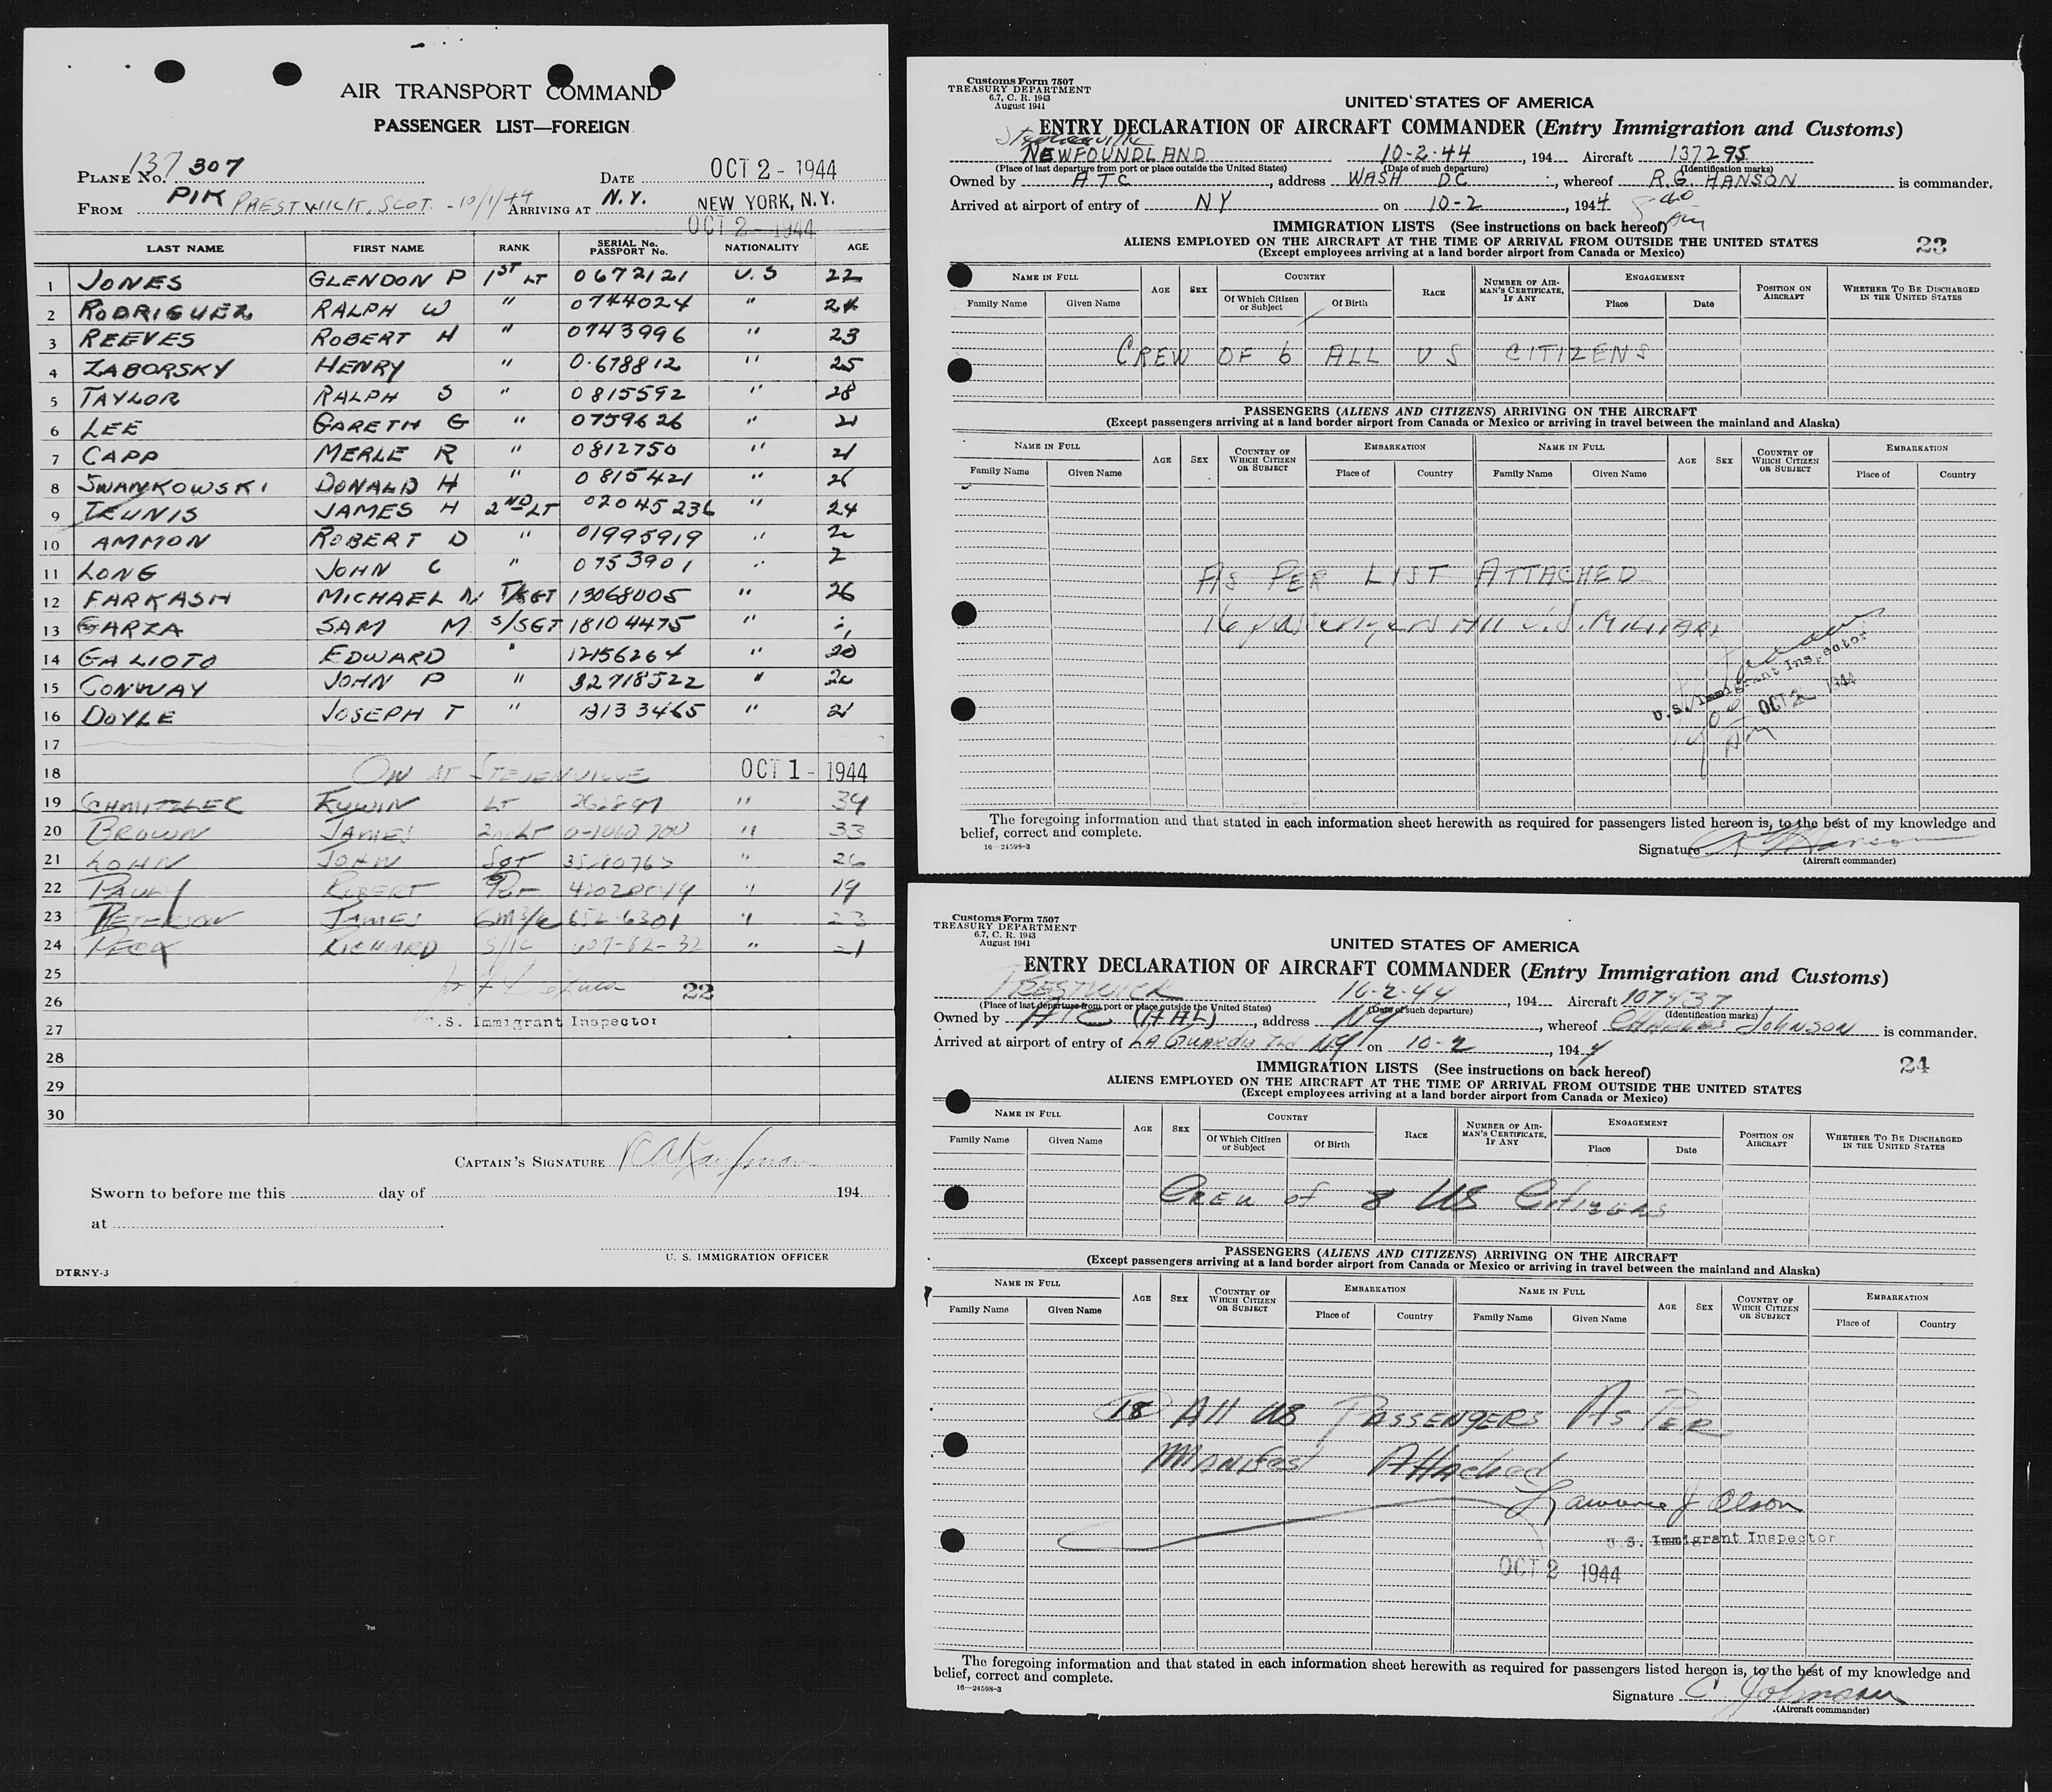 AIR TRANSPORT COMMAND
PASSENGER LIST—FOREIGN
PLANE NO. 137 307 DATE OCT 2 - 1944
FROM PIK PRESTWICK, SCOT. - 10/1/44 ARRIVING AT N.Y. NEW YORK, N.Y.
OCT 2 - 1944
LAST NAME FIRST NAME RANK SERIAL No. PASSPORT No. NATIONALITY AGE
1 JONES GLENDON P 1ST LT 0672121 U.S 22
2 RODRIGUEZ RALPH W " 0744024 " 24
3 REEVES ROBERT H " 0743996 " 23
4 ZABORSKY HENRY " 0-678812 " 25
5 TAYLOR RALPH S " 0815592 " 28
6 LEE GARETH G " 0759626 " 21
7 CAPP MERLE R " 0812750 " 21
8 SWANKOWSKI DONALD H " 0815421 " 26
9 TEUNIS JAMES H 2ND LT 02045236 " 24
10 AMMON ROBERT D " 01995919 "
11 LONG JOHN C " 0753901 "
12 FARKASH MICHAEL N T/SGT 13068005 " 26
13 GARZA SAM M S/SGT 18104475 "
14 GALIOTO EDWARD " 12156264 " 20
15 CONWAY JOHN P " 32718522 "
16 DOYLE JOSEPH T " " 21
17
18 ON AT STEVENVILLE OCT 1 - 1944
19 LT " 34
20 BROWN JAMES 2nd Lt " 33
21 JOHN Sgt " 26
22 PAULY ROBERT " 19
23 PETERSON JAMES 652-6301 " 23
24 RICHARD S/1C 607-82-32 " 21
25
26 22
27 U.S. Immigrant Inspector
28
29
30
CAPTAIN'S SIGNATURE
Sworn to before me this day of 194
at
U. S. IMMIGRATION OFFICER
DTRNY-3
Customs Form 7507
TREASURY DEPARTMENT
6.7, C. R. 1943
August 1941
UNITED STATES OF AMERICA
ENTRY DECLARATION OF AIRCRAFT COMMANDER (Entry Immigration and Customs)
Stephenville
NEWFOUNDLAND 10-2-44, 194 Aircraft 137295
(Place of last departure from port or place outside the United States) (Date of such departure) (Identification marks)
Owned by ATC, address WASH DC, whereof R.G. HANSON is commander.
Arrived at airport of entry of NY on 10-2, 1944
IMMIGRATION LISTS (See instructions on back hereof)
ALIENS EMPLOYED ON THE AIRCRAFT AT THE TIME OF ARRIVAL FROM OUTSIDE THE UNITED STATES 23
(Except employees arriving at a land border airport from Canada or Mexico)
NAME IN FULL AGE SEX COUNTRY RACE NUMBER OF AIRMAN'S CERTIFICATE, IF ANY ENGAGEMENT POSITION ON AIRCRAFT WHETHER TO BE DISCHARGED IN THE UNITED STATES
Family Name Given Name Of Which Citizen or Subject Of Birth Place Date
CREW OF 6 ALL US CITIZENS
PASSENGERS (ALIENS AND CITIZENS) ARRIVING ON THE AIRCRAFT
(Except passengers arriving at a land border airport from Canada or Mexico or arriving in travel between the mainland and Alaska)
NAME IN FULL AGE SEX COUNTRY OF WHICH CITIZEN OR SUBJECT EMBARKATION NAME IN FULL AGE SEX COUNTRY OF WHICH CITIZEN OR SUBJECT EMBARKATION
Family Name Given Name Place of Country Family Name Given Name Place of Country
AS PER LIST ATTACHED
16 passengers All U.S. Military
U.S. Immigrant Inspector
OCT 2 1944
The foregoing information and that stated in each information sheet herewith as required for passengers listed hereon is, to the best of my knowledge and
belief, correct and complete.
16—24598-3
Signature R G Hanson
(Aircraft commander)
Customs Form 7507
TREASURY DEPARTMENT
6.7, C. R. 1943
August 1941
UNITED STATES OF AMERICA
ENTRY DECLARATION OF AIRCRAFT COMMANDER (Entry Immigration and Customs)
PRESTWICK 10-2-44, 194 Aircraft 107437
(Place of last departure from port or place outside the United States) (Date of such departure) (Identification marks)
Owned by ATC (AAL), address NY, whereof CHARLES JOHNSON is commander.
Arrived at airport of entry of LA GUARDIA Fld NY on 10-2, 1944
IMMIGRATION LISTS (See instructions on back hereof) 24
ALIENS EMPLOYED ON THE AIRCRAFT AT THE TIME OF ARRIVAL FROM OUTSIDE THE UNITED STATES
(Except employees arriving at a land border airport from Canada or Mexico)
NAME IN FULL AGE SEX COUNTRY RACE NUMBER OF AIRMAN'S CERTIFICATE, IF ANY ENGAGEMENT POSITION ON AIRCRAFT WHETHER TO BE DISCHARGED IN THE UNITED STATES
Family Name Given Name Of Which Citizen or Subject Of Birth Place Date
Crew of 8 US Citizens
PASSENGERS (ALIENS AND CITIZENS) ARRIVING ON THE AIRCRAFT
(Except passengers arriving at a land border airport from Canada or Mexico or arriving in travel between the mainland and Alaska)
NAME IN FULL AGE SEX COUNTRY OF WHICH CITIZEN OR SUBJECT EMBARKATION NAME IN FULL AGE SEX COUNTRY OF WHICH CITIZEN OR SUBJECT EMBARKATION
Family Name Given Name Place of Country Family Name Given Name Place of Country
18 All US PASSENGERS AS PER
MANIFEST Attached
Lawrence J Olson
U.S. Immigrant Inspector
OCT 2 1944
The foregoing information and that stated in each information sheet herewith as required for passengers listed hereon is, to the best of my knowledge and
belief, correct and complete.
16—24598-3
Signature C Johnson
(Aircraft commander)